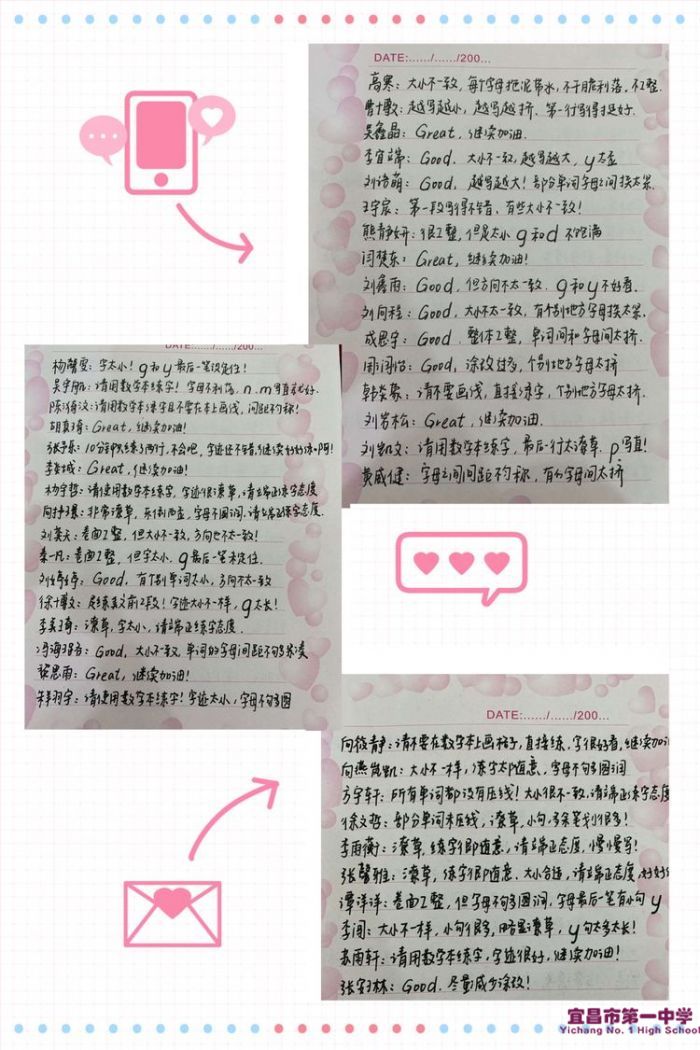 DATE:....../....../200...
高寒：大小不一致，每个字母拖泥带水，不干脆利落，不工整。
曹博毅：越写越小，越写越挤，第一行写得挺好.
吴鑫晶：Great，继续加油.
李宜端：Good．大小不一致，越写越大，y太歪
刘诗萌：Good，越写越大！部分单词字母之间挨太紧．
王宇宸：第一段写得不错，有些大小不一致！
熊静妍：很工整，但是太小 g和d 不饱满
闫楚东：Great，继续加油！
刘鑫雨：Good，但方向不太一致．g和y不好看．
刘向程：Good，大小不太一致，有个别地方字母挨太紧．
成思宇：Good．整体工整，单词间和字母间太挤．
周润怡：Good，涂改过多，个别地方字母太挤
韩奕豪：请不要画线，直接练字，个别地方字母太挤．
刘岩松：Great，继续加油．
刘凯文：请用数学本练字，最后一行太潦草．p写直！
黄威健：字母之间间距不匀称，有的字母间太挤
DATE:....../....../200...
杨馨雯：字太小！g和y最后一笔没定住！
吴宇航：请用数学本练字！字母不利落，n.m写直就好．
请用数学本练字且不要在本上画线，间距匀称！
胡真琦：Great，继续加油！
张予辰：10分钟只练了两行，不会吧，字迹还不错，继续好好练
Great，继续加油！
杨宇哲：请使用数学本练字，字迹很潦草，请端正练字态度
非常潦草，东倒西歪，字母不圆润．请端正练字态度．
刘英天：卷面工整，但大小不一致，方向也不太一致！
秦一凡：卷面工整，但字太小．g最后一笔未定住．
Good．有个别单词太小，方向不太一致
徐博文：是练课文前2段！字迹大小不一样，g太长！
李英琦：潦草，字太小，请端正练字态度．
Good，大小不一致，单词的字母间距不够紧凑
张思雨：Great，继续加油！
请使用数学本练字！字迹太小，字母不够圆
DATE:....../....../200...
向筱静：请不要在数学本上画格子，直接练，字很好看，继续加油
向燕岚凯：大小不一样，练字太随意，字母不够圆润
方宇轩：所有单词都没有压线！大小很不一致，请端正练字态度
徐文哲：部分单词未压线，潦草，小勾，多余笔划很多！
李雨衡：潦草，练字很随意，请端正态度，慢慢写！
张馨雅：潦草，练字很随意．大小合适，请端正态度，好好
谭洋洋：卷面工整，但字母不够圆润，字母最后一笔有小勾 y
李闻：大小不一样，小勾很多，略显潦草，y勾太多太长！
苏雨轩：请用数学本练字，字迹很好，继续加油！
张钰林：Good．尽量减少涂改！
宜昌市第一中学
Yichang No. 1 High School